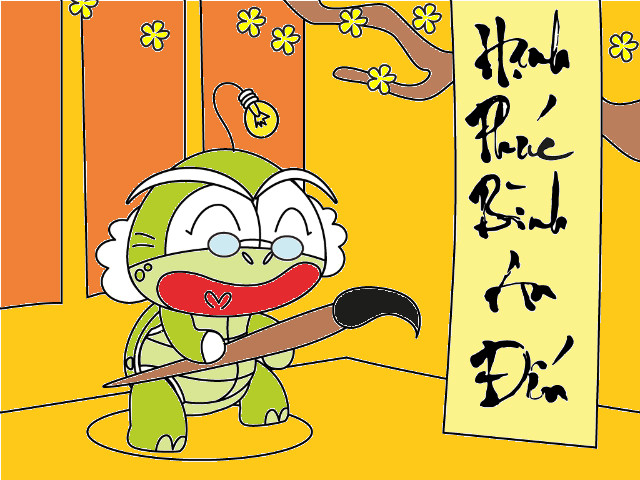 Hạnh
Phúc
Bình
An
Đến